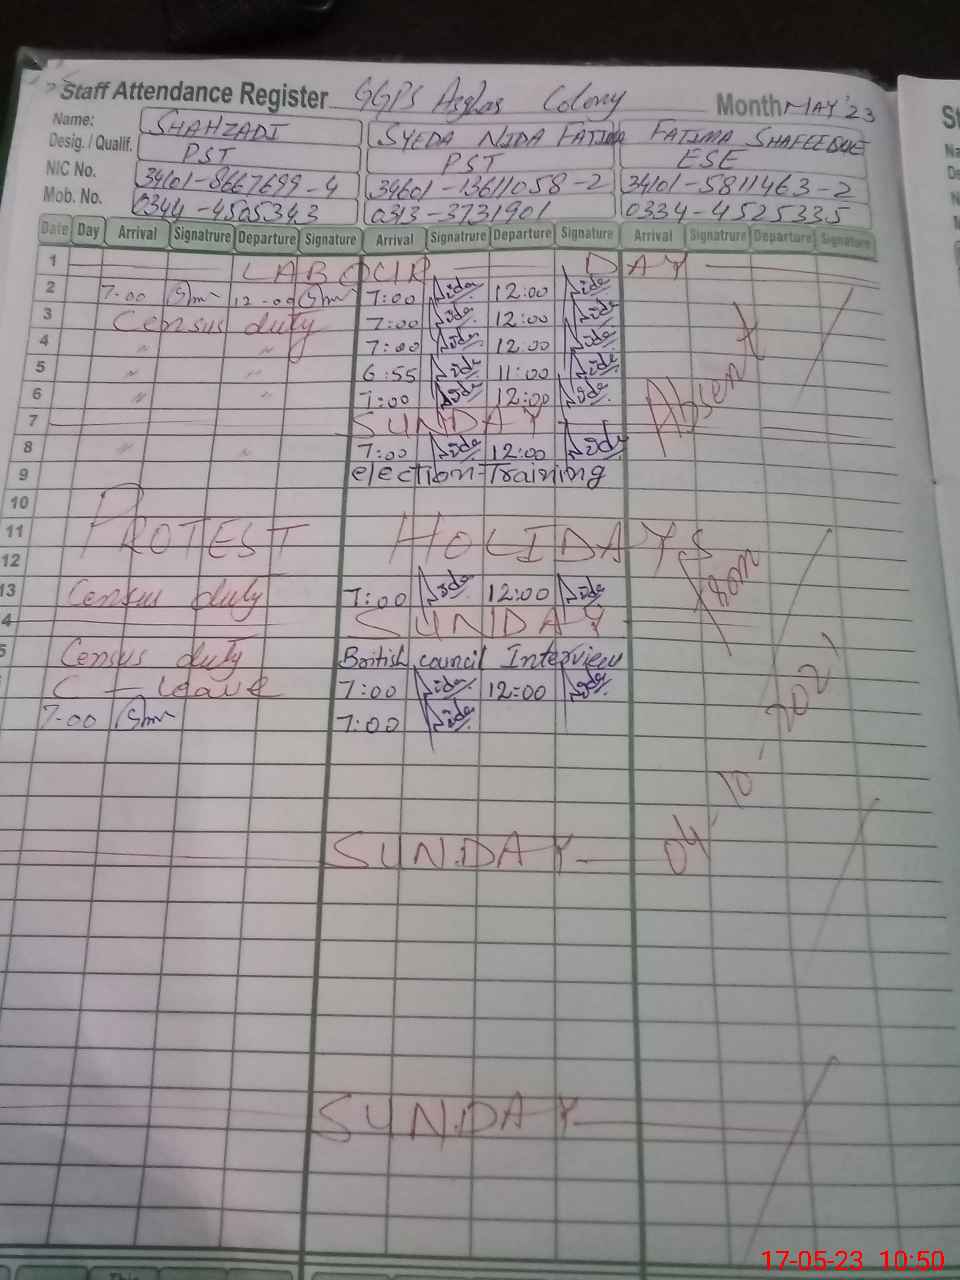 Staff Attendance Register GGPS Asghar Colony Month MAY'23
Name: SHAHZADI SYEDA NIDA FATIMA FATIMA SHAFEEQUE
Desig. / Qualif. PST PST ESE
NIC No. 34101-8667699-4 34601-13611058-2 34101-5811463-2
Mob. No. 0344-4505343 0313-3731901 0334-4525335
Date Day Arrival Signatrure Departure Signature Arrival Signatrure Departure Signature Arrival Signatrure Departure Signature
1 LABOUR DAY
2 7-00 12-00 7:00 Nida 12:00 Nida
3 Census duty 7:00 Nida 12:00 Nida
4 " " 7:00 Nida 12:00 Nida
5 " " 6:55 Nida 11:00 Nida
6 " " 7:00 Nida 12:00 Nida
7 SUNDAY
8 " " 7:00 Nida 12:00 Nida
9 election Training
10
11 PROTEST HOLIDAYS
12
13 Census duty 7:00 Nida 12:00 Nida
4 SUNDAY
5 Census duty British council Interview
C-leave 7:00 Nida 12:00 Nida
7-00 7:00 Nida
SUNDAY
SUNDAY
Absent from 04-10-2021
This
17-05-23 10:50